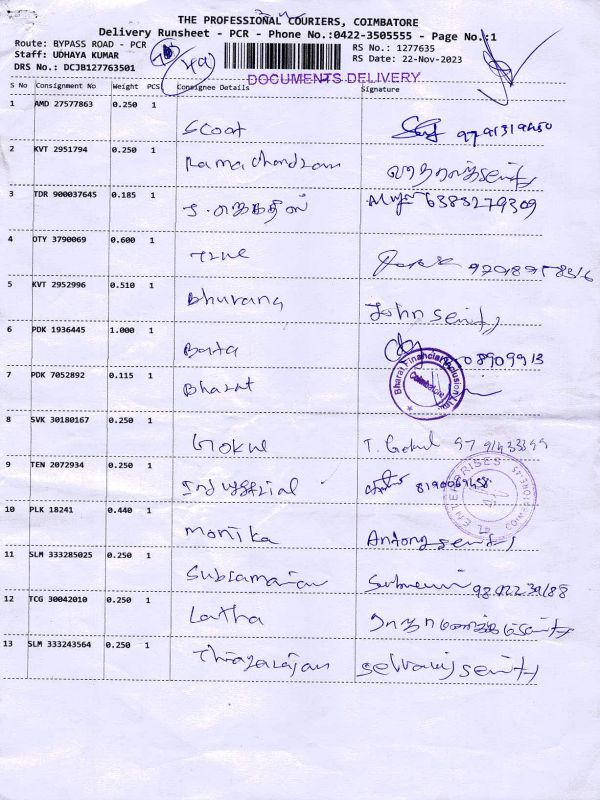 THE PROFESSIONAL COURIERS, COIMBATORE
Delivery Runsheet - PCR - Phone No.:0422-3505555 - Page No.:1
Route: BYPASS ROAD - PCR
RS No.: 1277635
Staff: UDHAYA KUMAR
RS Date: 22-Nov-2023
DRS No.: DCJB127763501
DOCUMENTS DELIVERY
S No Consignment No Weight PCS Consignee Details Signature
1 AMD 27577863 0.250 1 Scoot
2 KVT 2951794 0.250 1 Ramachandran
3 TDR 900037645 0.185 1 6383279309
4 OTY 3790069 0.600 1
5 KVT 2952996 0.510 1 Bhuvana John
6 PDK 1936445 1.000 1
Bharat Financial Inclusion Ltd.
Coimbatore
7 PDK 7052892 0.115 1 Bharat
8 SVK 30180167 0.250 1 Gokul T. Gokul
9 TEN 2072934 0.250 1 Industrial
ENTERPRISES
COIMBATORE-45
10 PLK 18241 0.440 1 Monika Antony
11 SLM 333285025 0.250 1
12 TCG 30042010 0.250 1 Latha
13 SLM 333243564 0.250 1 Thiagarajan